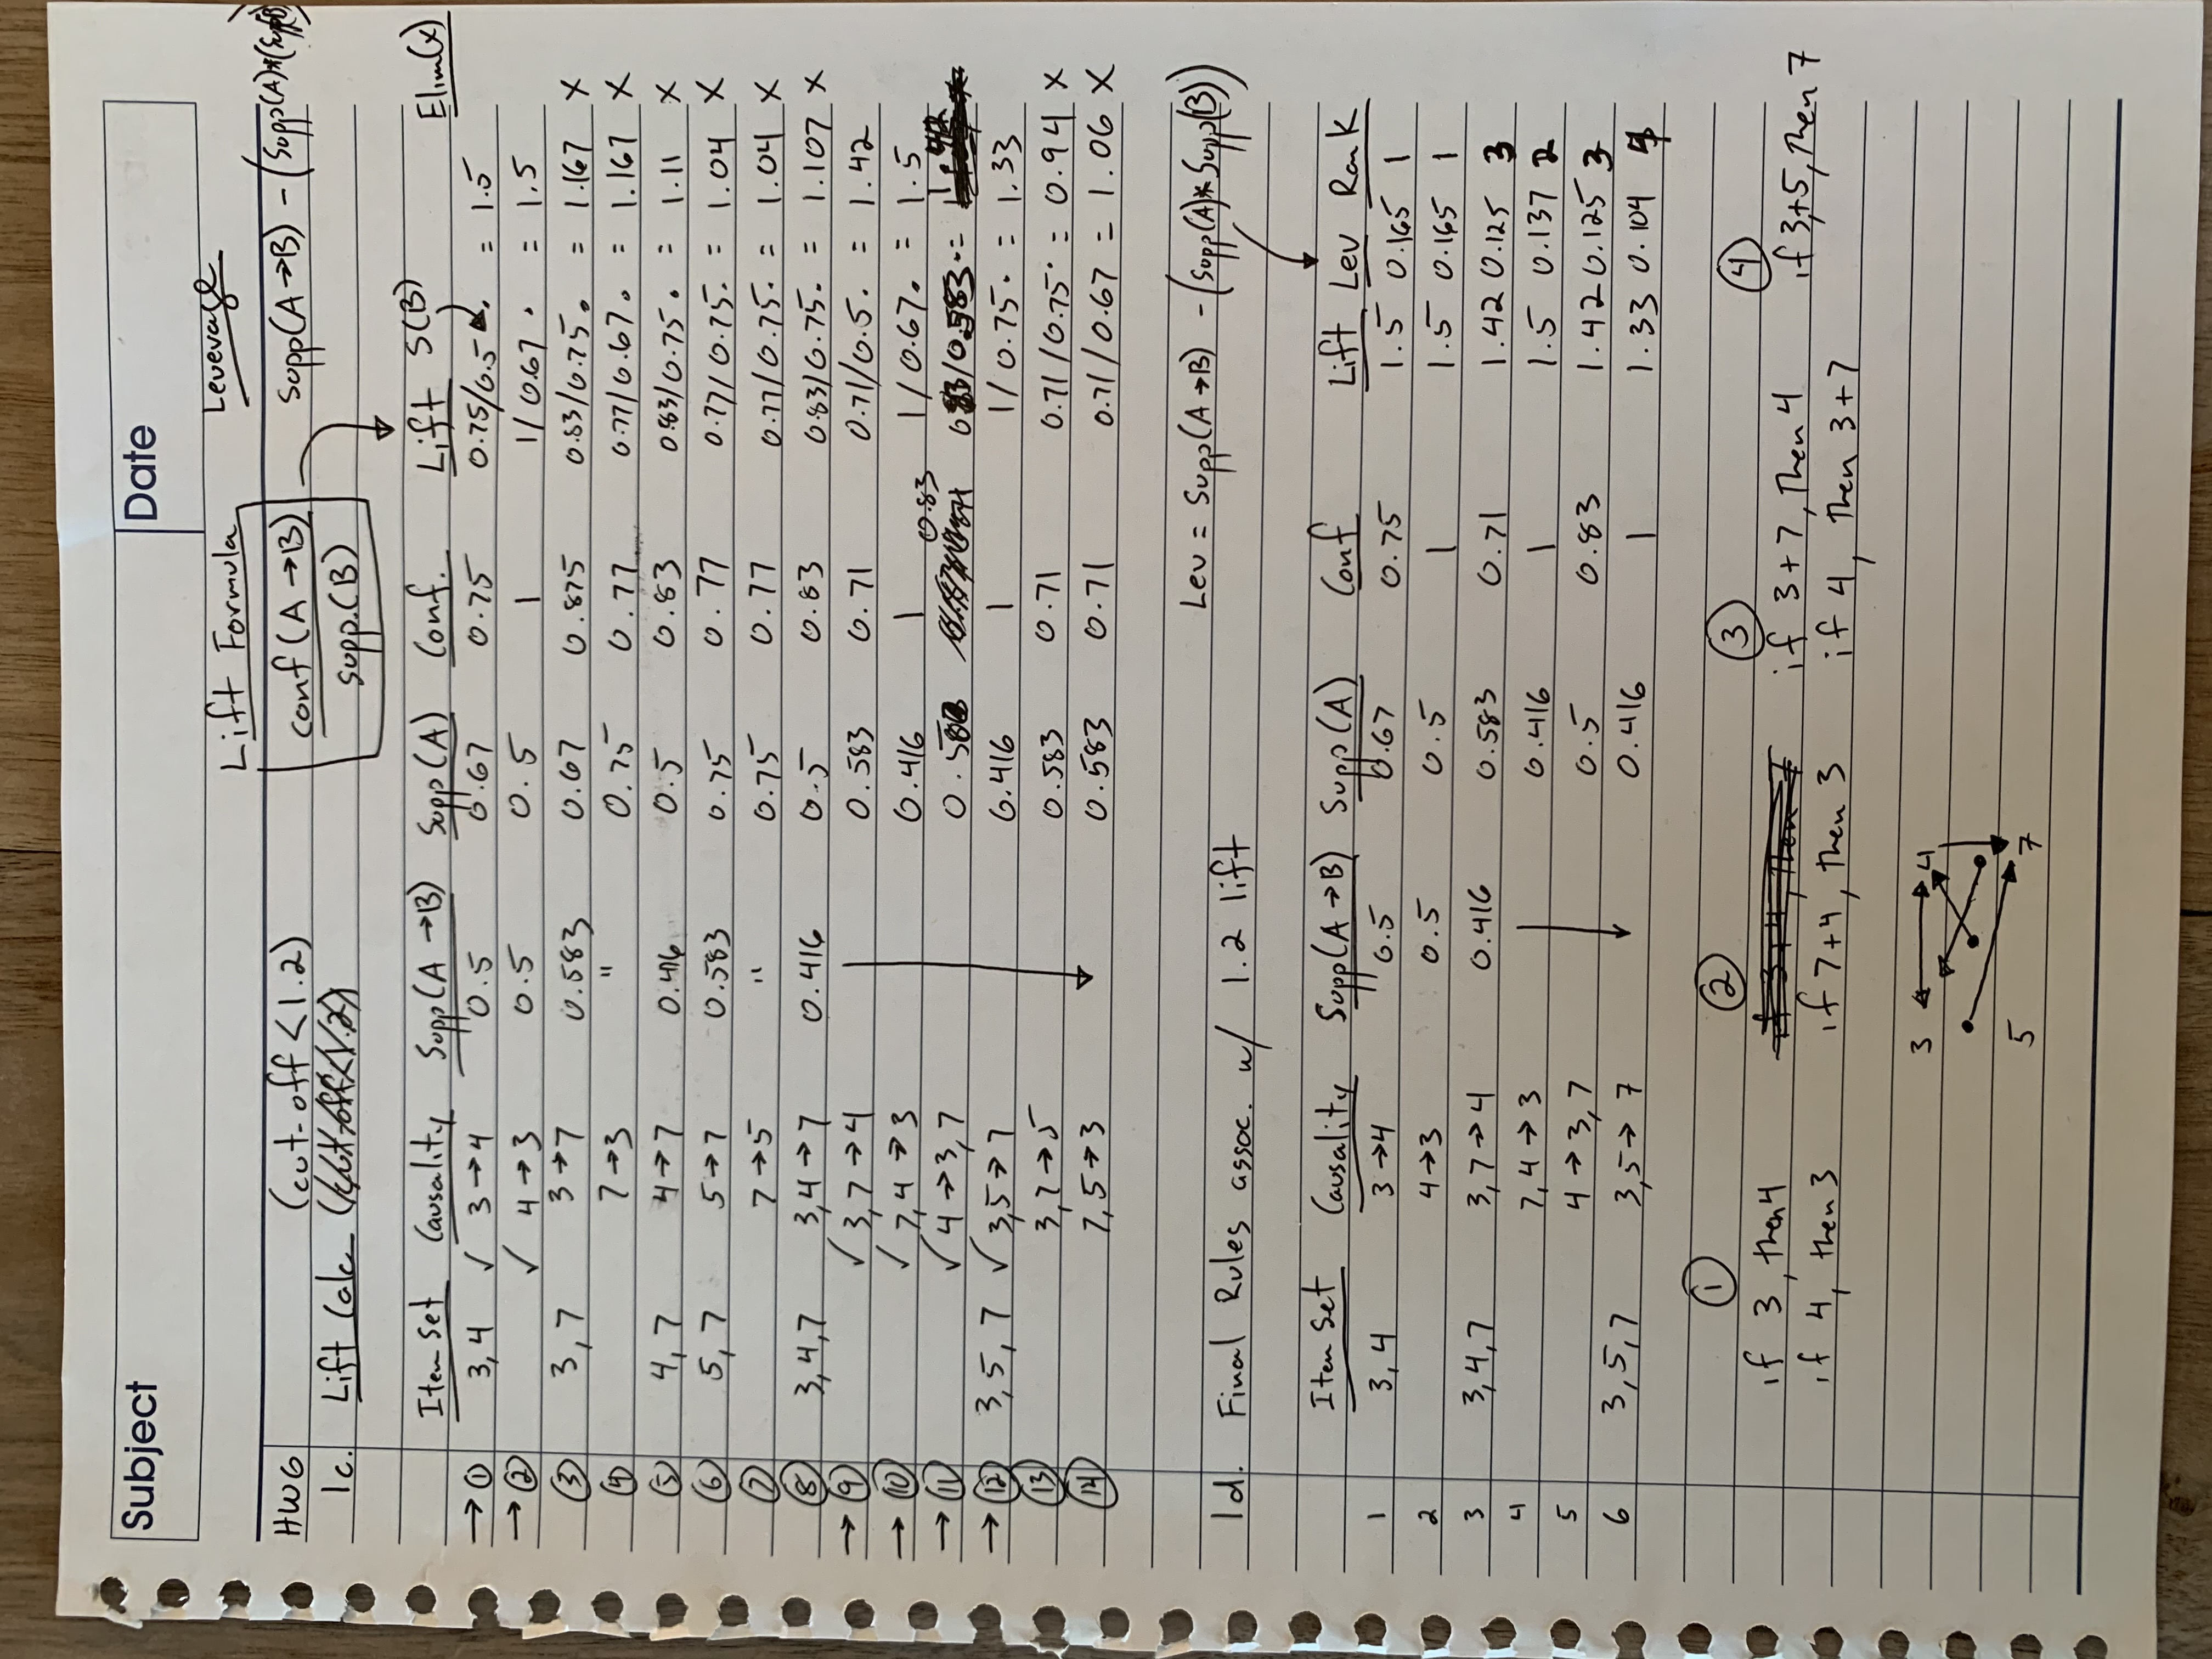 Subject Date
Lift Formula Leverage
HW6 (cut-off <1.2) conf(A→B) Supp(A→B) - (Supp(A)*(Supp(B)
1c. Lift Calc supp.(B)
Item Set Causality Supp(A→B) Supp(A) Conf. Lift S(B) Elim(x)
→ ① 3,4 ✓ 3→4 0.5 0.67 0.75 0.75/0.5 = 1.5
→ ② ✓ 4→3 0.5 0.5 1 1/0.67 = 1.5
③ 3,7 3→7 0.583 0.67 0.875 0.83/0.75 = 1.167 x
④ 7→3 " 0.75 0.77 0.77/0.67 = 1.167 x
⑤ 4,7 4→7 0.416 0.5 0.83 0.83/0.75 = 1.11 x
⑥ 5,7 5→7 0.583 0.75 0.77 0.77/0.75 = 1.04 x
⑦ 7→5 " 0.75 0.77 0.77/0.75 = 1.04 x
⑧ 3,4,7 3,4→7 0.416 0.5 0.83 0.83/0.75 = 1.107 x
→ ⑨ ✓ 3,7→4 0.583 0.71 0.71/0.5 = 1.42
→ ⑩ ✓ 7,4→3 0.416 1 1/0.67 = 1.5
→ ⑪ ✓ 4→3,7 0.83 /0.583 = 1.42
→ ⑫ 3,5,7 ✓ 3,5→7 0.416 1 1/0.75 = 1.33
⑬ 3,7→5 0.583 0.71 0.71/0.75 = 0.94 x
⑭ 7,5→3 0.583 0.71 0.71/0.67 = 1.06 x
Lev = Supp(A→B) - (Supp(A)*Supp(B))
1d. Final Rules assoc. w/ 1.2 lift
Item Set Causality Supp(A→B) Supp(A) Conf Lift Lev Rank
1 3,4 3→4 0.5 0.67 0.75 1.5 0.165 1
2 4→3 0.5 0.5 1 1.5 0.165 1
3 3,4,7 3,7→4 0.416 0.583 0.71 1.42 0.125 3
4 7,4→3 0.416 1 1.5 0.137 2
5 4→3,7 0.5 0.83 1.42 0.125 3
6 3,5,7 3,5→7 0.416 1 1.33 0.104 4
① ② ③ ④
if 3, then 4 if 3+4, then 7 if 3+7, Then 4 if 3,+5, Then 7
if 4, then 3 if 7+4, then 3 if 4, Then 3+7
3 4
5 7